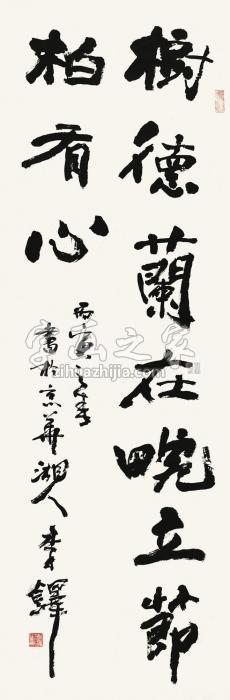 樹德蘭在畹立節
柏有心
丙寅之年
書於京華湘人李鐸
字画之家
zihuazhijia.com